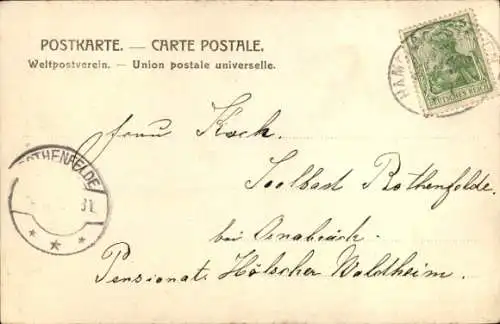 POSTKARTE. — CARTE POSTALE.
Weltpostverein. — Union postale universelle.
DEUTSCHES REICH
HAM
Frau Koch.
ROTHENFELDE
31
Soolbad Rothenfelde.
bei Osnabrück.
Pensionat. Hölscher Waldheim.